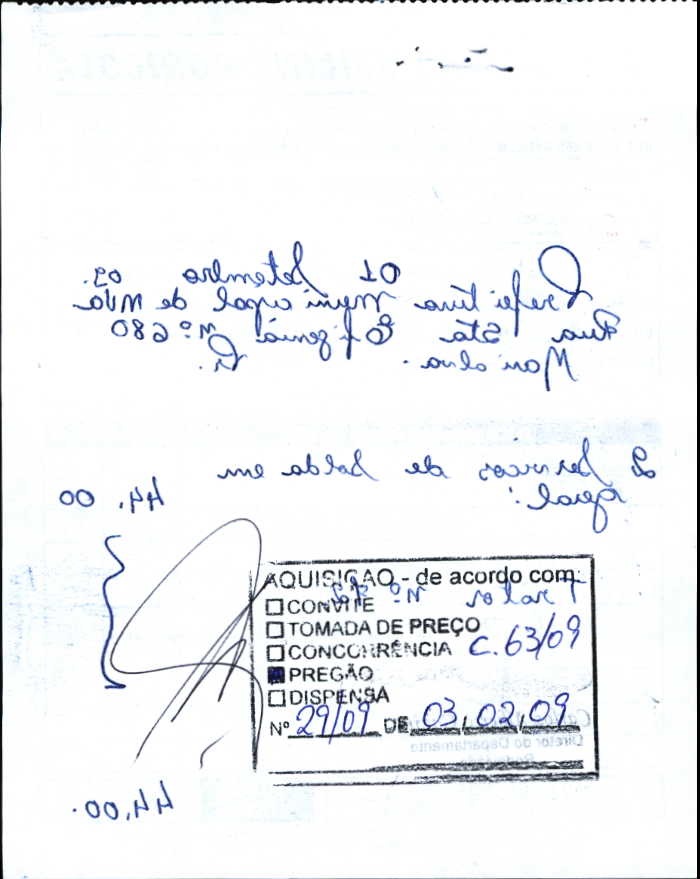 01 Setembro 09.
Prefeitura Municipal de Mva
Rua Sta Efigenia Nº 680
Marialva. Pr.
2 Servicos de Solda em
geral: 44,00
AQUISIÇAO - de acordo com:
Trator Nº
CONVITE
TOMADA DE PREÇO
CONCORRÊNCIA C. 63/09
PREGÃO
DISPENSA
Nº 29/09 DE 03, 02, 09
Diretor do Departamento
44,00.